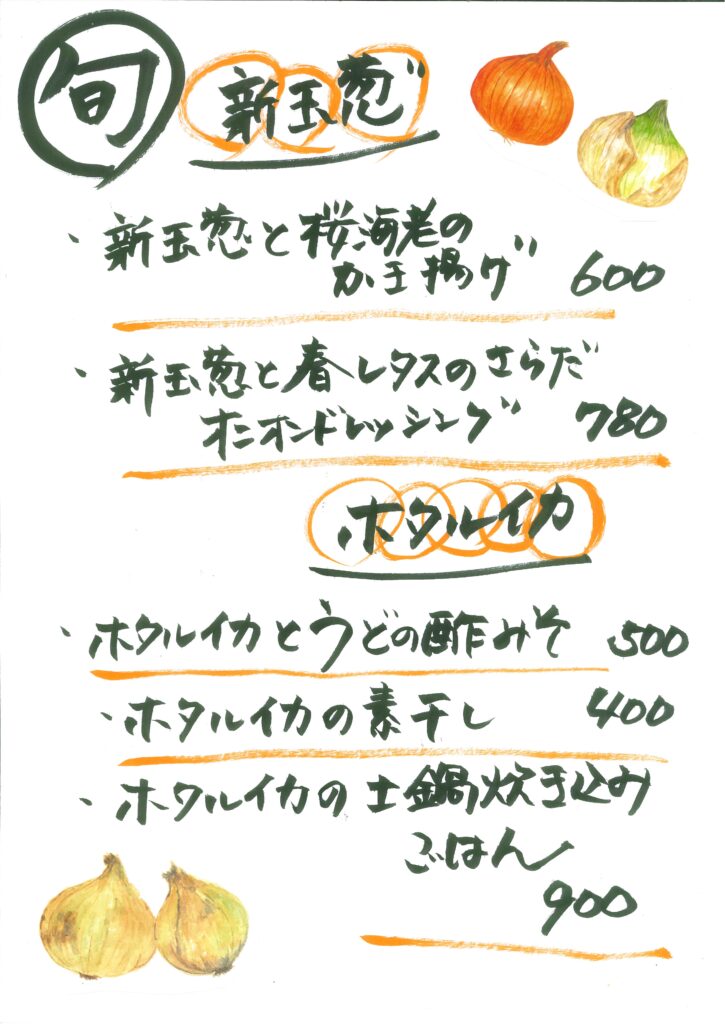 旬
新玉葱
・新玉葱と桜海老の
かき揚げ 600
・新玉葱と春レタスのさらだ
オニオンドレッシング 780
ホタルイカ
・ホタルイカとうどの酢みそ 500
・ホタルイカの素干し 400
・ホタルイカの土鍋炊き込み
ごはん
900